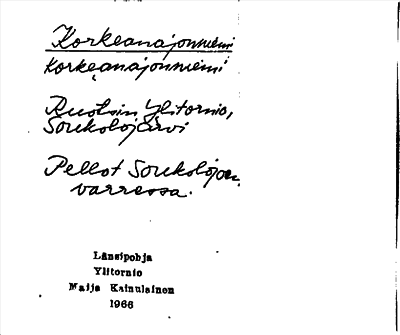 Korkeanajonniemi
Korkeanajonniemi
Ruotsin Ylitornio,
Soukolojärvi
Pellot Soukolojoen
varressa.
Länsipohja
Ylitornio
Maija Kainulainen
1966